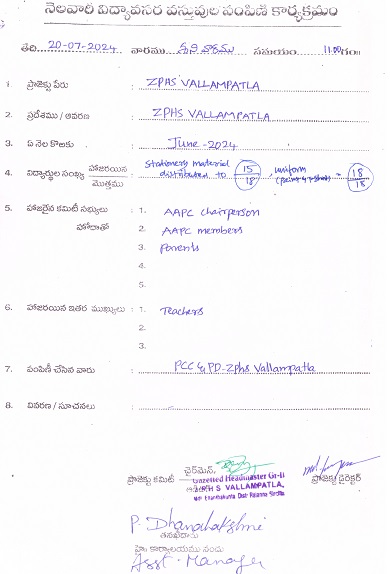 నెలవారీ విద్యావసర వస్తువుల పంపిణీ కార్యక్రమం
తేది: 20-07-2024 వారము శనివారము సమయం 11.00గం॥
1. ప్రాజెక్టు పేరు : ZPHS VALLAMPATLA
2. ప్రదేశము / ఆవరణ : ZPHS VALLAMPATLA
3. ఏ నెల కొరకు : June-2024
4. విద్యార్థుల సంఖ్య హాజరయిన / మొత్తము : Stationery material distributed to 15/18, uniform 18/18
5. హాజరైన కమిటీ సభ్యులు : 1. AAPC chairperson
హోదాతో 2. AAPC members
3. Parents
4.
5.
6. హాజరయిన ఇతర ముఖ్యులు : 1. Teachers
2.
3.
7. పంపిణీ చేసిన వారు : PCC & PD-Zphs Vallampatla
8. వివరణ / సూచనలు : –
ప్రాజెక్టు కమిటీ ఛైర్మెన్, ప్రాజెక్టు డైరెక్టర్
Gazetted Headmaster Gr-II
Z P H S VALLAMPATLA,
Distr Rajanna Sircilla
P. Dhanalakshmi
హెచ్ కార్యాలయము నందు
Asst. Manager